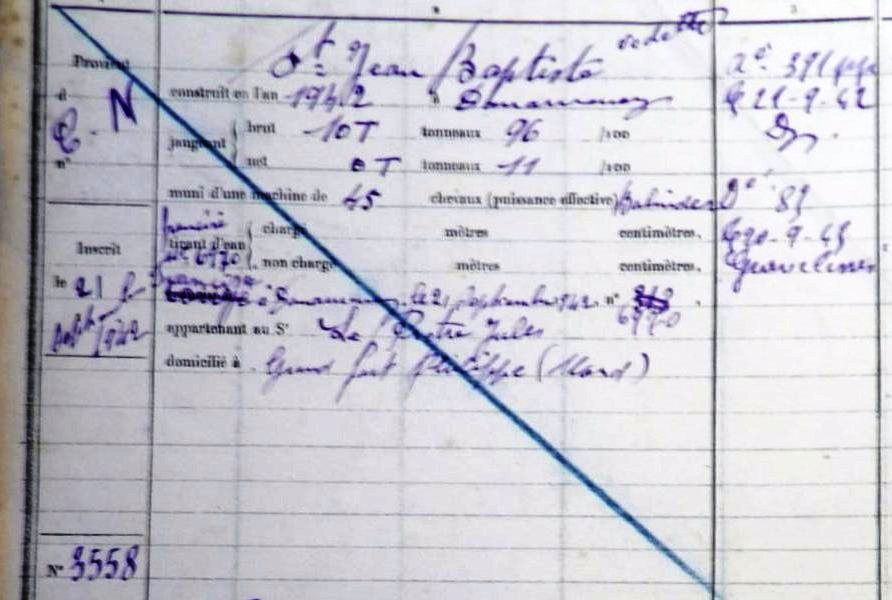 Provient
d
C. N
n°
St Jean Baptiste vedette
construit en l'an 1942 à Douarnenez
jaugeant
brut 10T tonneaux 96 /100
net 0T tonneaux 11 /100
muni d'une machine de 45 chevaux (puissance effective) Baudouin
francisé
tirant d'eau
n° 6970
chargé mètres centimètres.
non chargé mètres centimètres.
à Douarnenez le 21 Septembre 1942. n°
6970
appartenant au Sr Le Jules
domicilié à Grand fort Philippe (Nord)
Inscrit
le 21
Septb 1942
N° 3558
21-9-42
D° 89
20-9-45
Gravelines